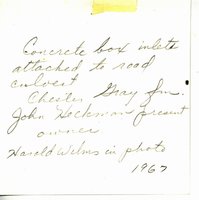 Concrete box inlets
attached to road
culvert
Chester Gray fm.
John Heckman present
owner
Harold Wilms in photo
1967